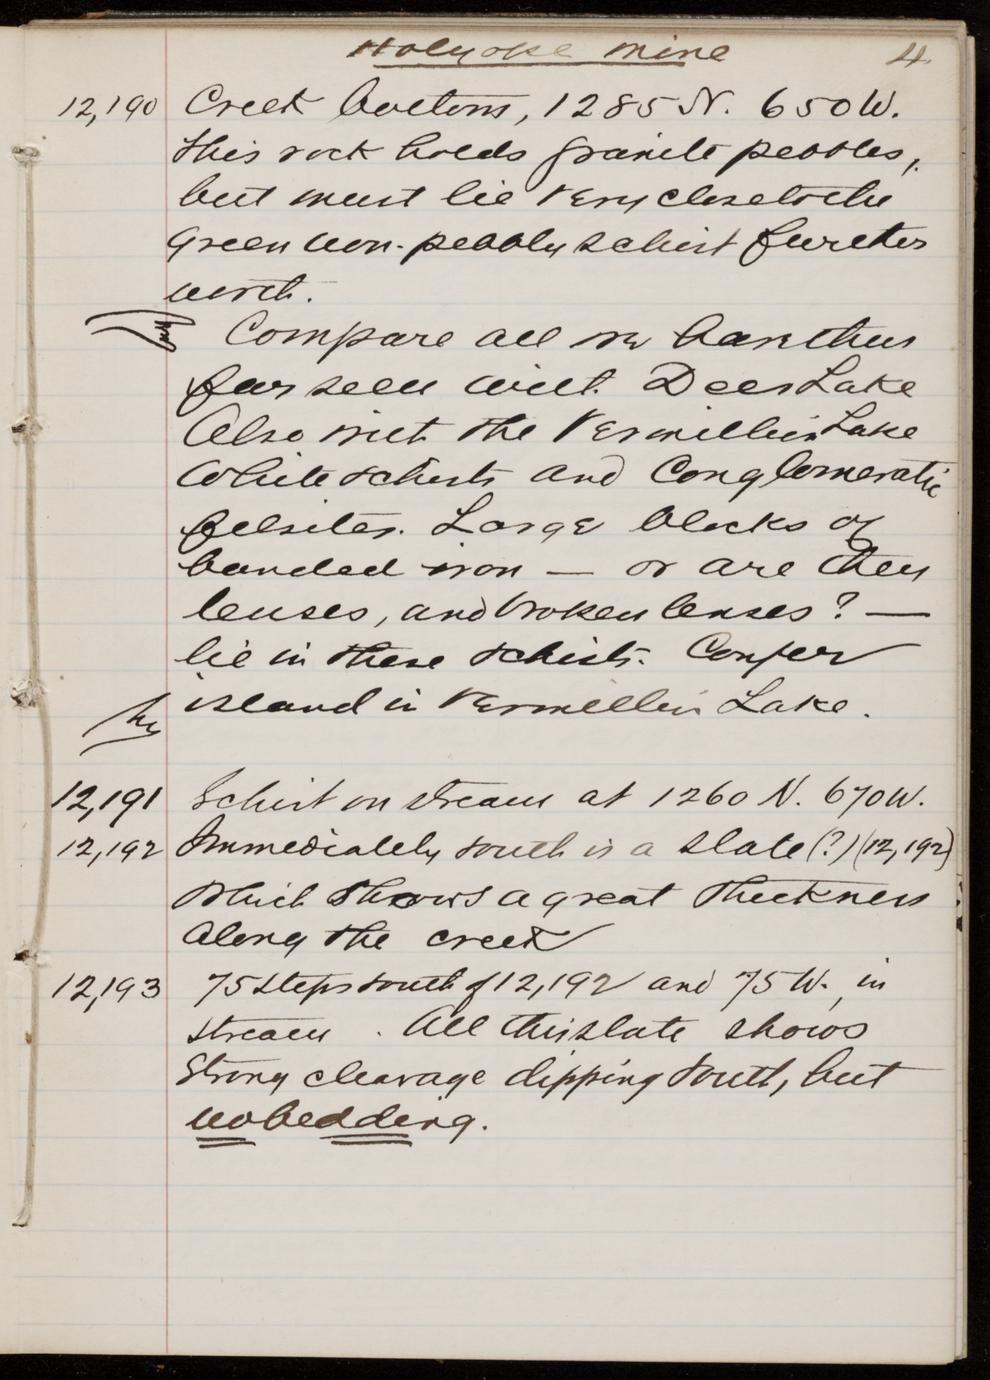 Holyoke mine 4
12,190 Creek bottom, 1285 N. 650 W.
this rock holds granite pebbles,
but must lie very close to the
green non-pebbly schist further
north.
Compare all we have thus
far seen with Deer Lake
Also with the Vermillion Lake
White schists and Conglomeratic
felsites. Large blocks of
banded iron — or are they
lenses, and broken lenses? —
lie in these schists. Confer
island in Vermillion Lake.
12,191 Schist on stream at 1260 N. 670 W.
12,192 Immediately south is a slate (?) (12,192)
which shows a great thickness
along the creek
12,193 75 steps south of 12,192 and 75 W., in
stream. All this slate shows
strong cleavage dipping south, but
no bedding.